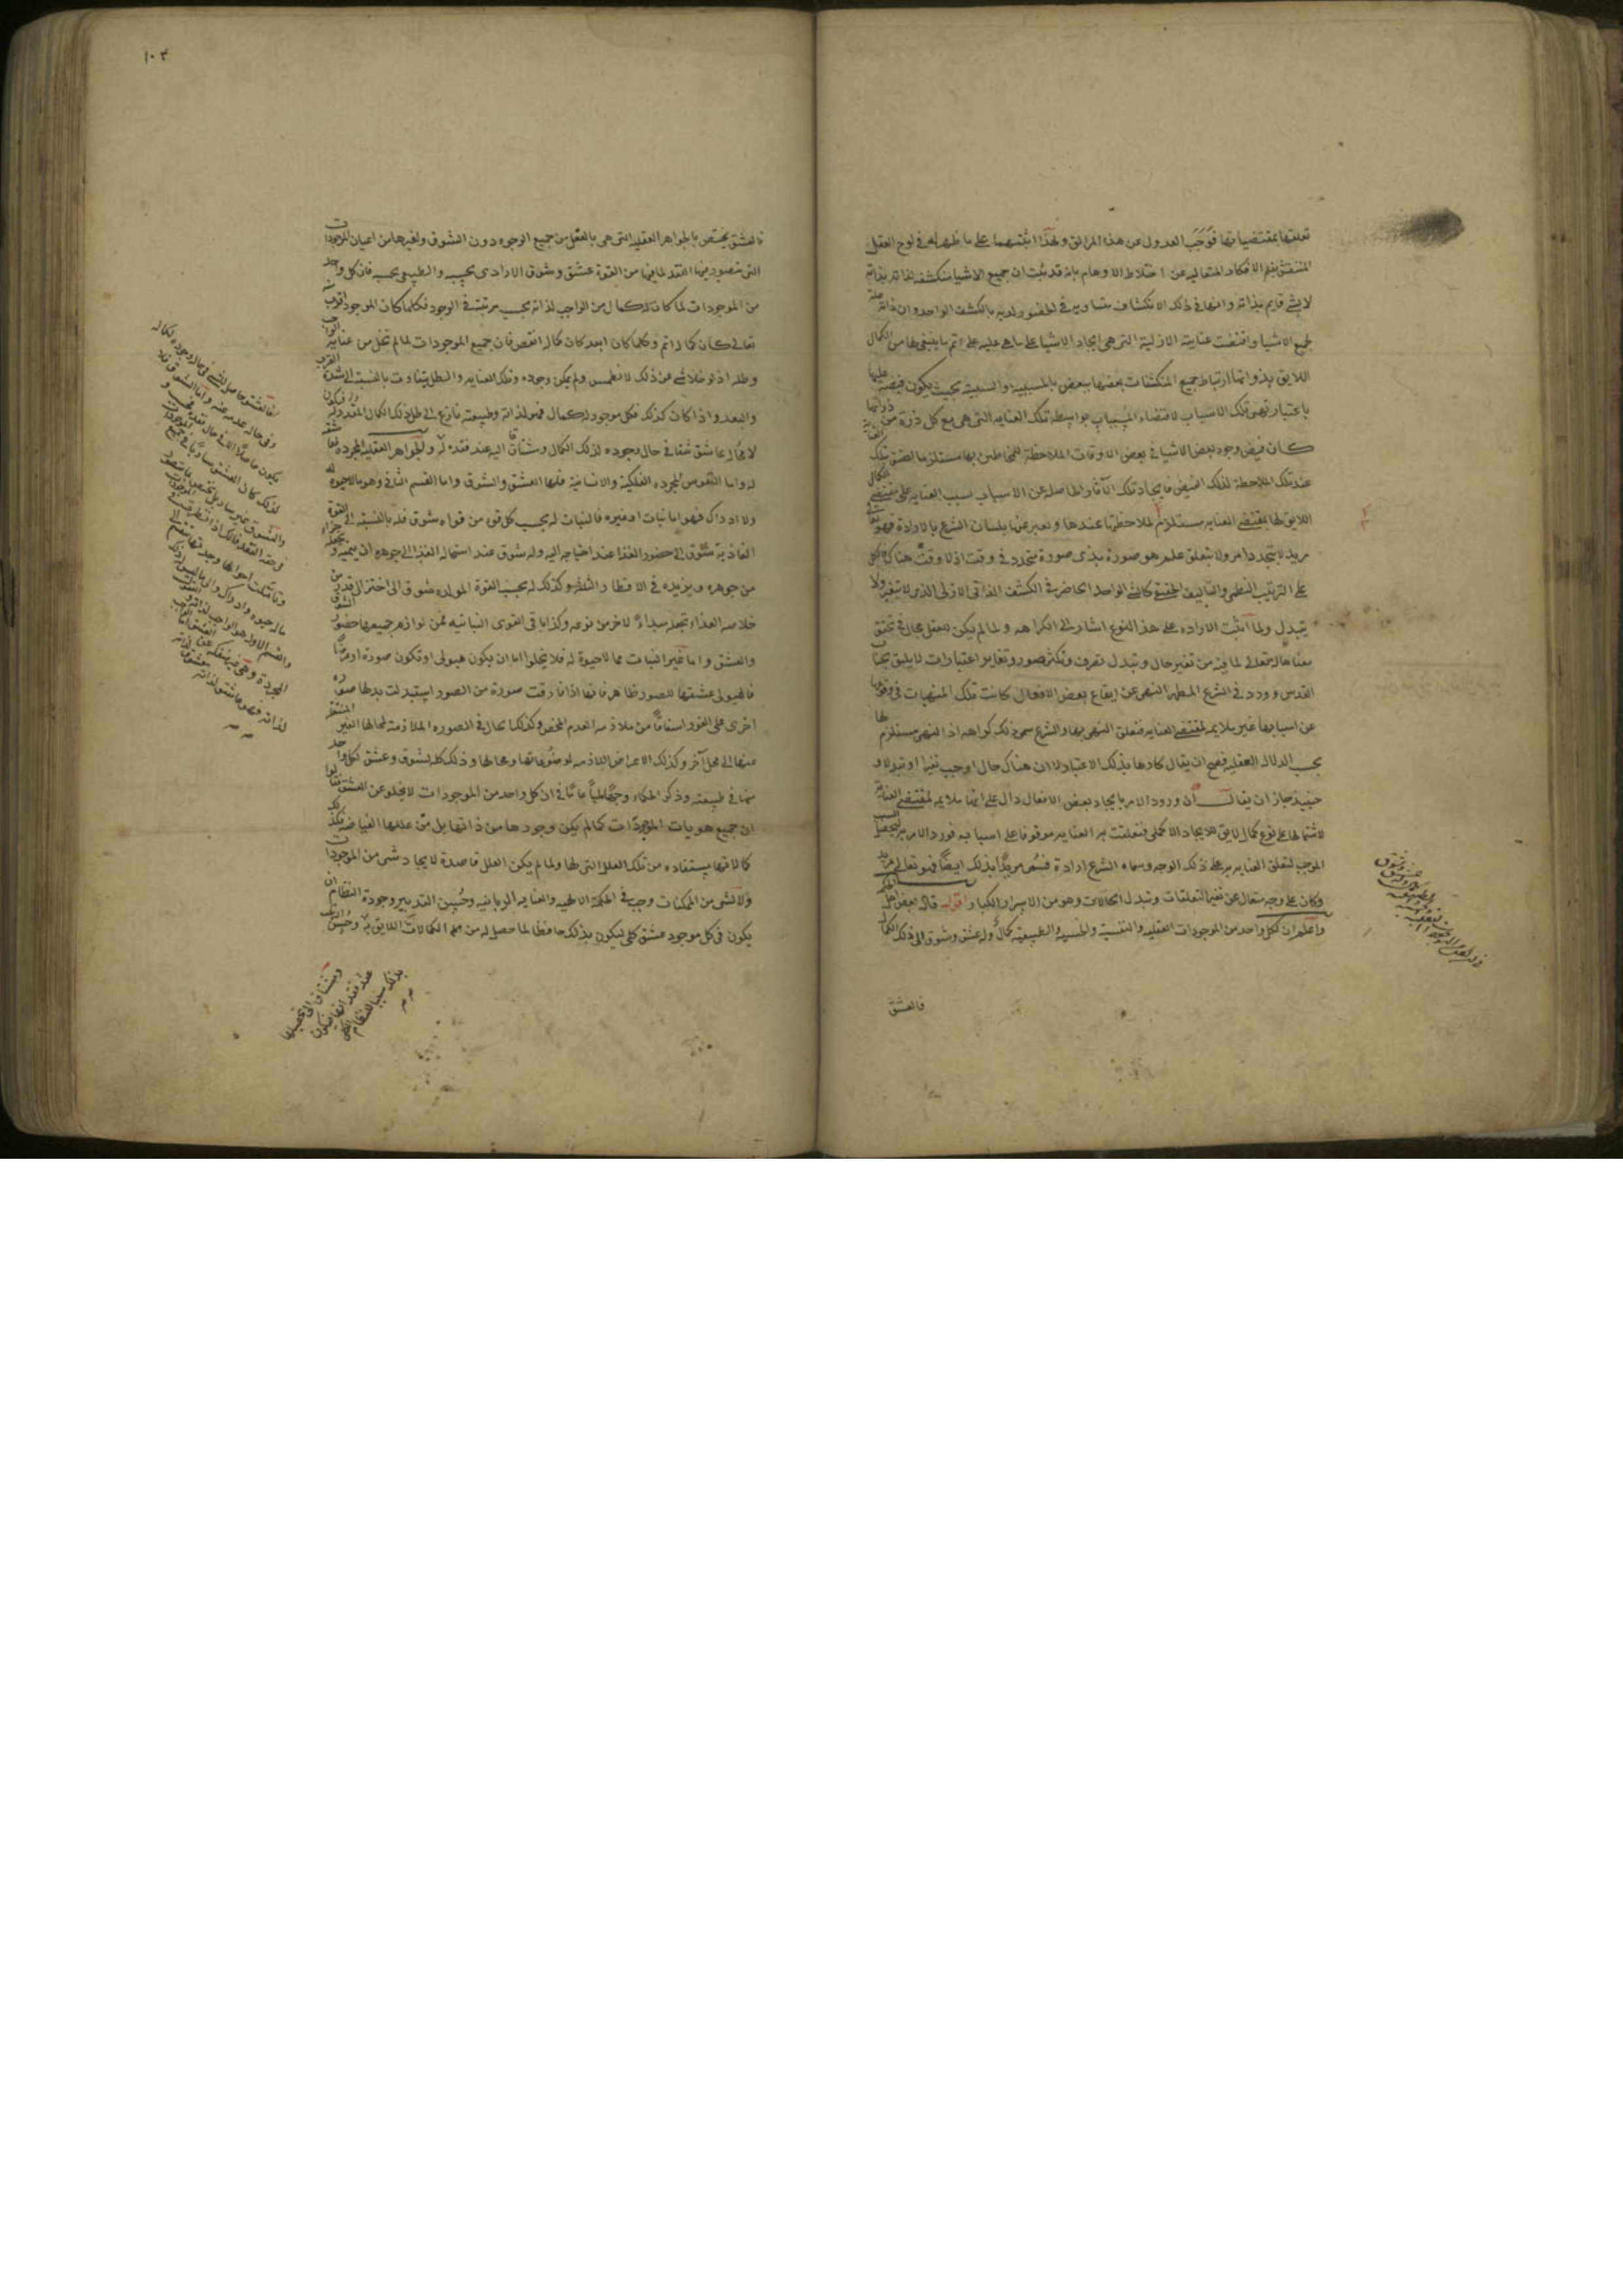 تعلقها بمقتضياتها فوجب العدول عن هذا المزالق ولهذا اثبتهما على ما ظهر له في لوح العقل
المنتقش بقلم الافكار المتعاليه عن اختلاط الاوهام بانه قد ثبت ان جميع الاشيا منكشفه لذاته بذاته
لا بشي قايم بذاته وانها في ذلك الانكشاف متساويه في الحضور لديه بالكشف الواحد وان ذاته علة
لجميع الاشيا واقتضت عنايته الازلية التي هي ايجاد الاشيا على ما هي عليه على اتم ما ينبغي لها من الكمال
اللايق بذواتها ارتباط جميع المنكشفات بعضها ببعض بالمسببية والسببية بحيث يكون فيضه عليها
باعتبار تلك الاسباب لاقتضاء المسببات بواسطة تلك العنايه التي هي مع كل ذرة من ذواتها
كان فيض وجود بعض الاشيا في بعض الاوقات الملاحظة للمخاطبين بها مستلزما لصدق تلك العناية
عند تلك الملاحظة لذلك الفيض فايجاد تلك الآثار الحاصله عن الاسباب بسبب العنايه على مقتضى الكمال
اللايق لها بمقتضى العنايه مستلزم لملاحظتها عندها ويعبر عنها بلسان الشرع بالارادة فهو تعالى
مريد لا يتجدد امر ولا يتعلق علمه هو صورة بذي صورة يتجدد في وقت اذ لا وقت هناك فالكل
على الترتيب النظمي والتاليف الحقيقي كالشي الواحد الحاضر في الكشف الذاتي الازلي الذي لا يتغير ولا
يتبدل ولما اثبت الاراده على هذا النوع اشار الى الكراهه ولما لم يكن للعقل مجال في تحقق
معناها له تعالى لما فيه من تغير حال وتبدل تصرف وتكثر صور وتغاير اعتبارات لا يليق بجناب
القدس وورد في الشرع المطهر النهي عن ايقاع بعض الافعال وكانت تلك المنهيات في وقوعها
عن اسبابها غير ملايمه لمقتضى العنايه فتعلق النهي بها والشرع سمى ذلك كراهه اذ النهي مستلزم لها
بحسب الدلاله العقليه فصح ان يقال كارها بذلك الاعتبار لا ان هناك حال اوجب تغيرا او تبدلا و
حينيذ جاز ان يقال ان ورود الامر بايجاد بعض الافعال دال على انها ملايمه لمقتضى العناية
لاشتمالها على نوع كمال لايق بالايجاد الاكملي فتعلقت به العنايه موقوفا على اسبابه فورد الامر به لتحصيل السبب
الموجب لتعلق العنايه به على ذلك الوجه وسماه الشرع ارادة فسمي مريدا بذلك ايضا فهو تعالى مريد
وكاره على وجه متعال عن تغير التعلقات وتبدل الحالات وهو من الاسرار الكبار اقول قال بعض اهل الحكمة
واعلم ان لكل واحد من الموجودات العقليه والنفسية والحسيه والطبيعيه كمالا وله عشق وشوق الى ذلك الكمال
فالعشق
١٠٣
فالعشق يختص بالجواهر العقليه التي هي بالفعل من جميع الوجوه دون الشوق ولغيرها من اعيان الموجودات
التي يتصور فيها الفقد لما فيها من القوة عشق وشوق الارادي بحسبه والطبيعي بحسبه فان كل واحد
من الموجودات لما كان له كمال من الواجب لذاته بحسب مرتبته في الوجود فكلما كان الموجود اقرب منه
تعالى كان كماله اتم وكلما كان ابعد كان كماله انقص فان جميع الموجودات لما لم تخل من عناية الواجب
وظله اذ لو خلا شي عن ذلك لانطمس ولم يمكن وجوده وتلك العنايه والظل يتفاوت بالنسبة الى شدة القرب
والبعد واذا كان كذلك فكل موجود له كمال فهو لذاته وطبيعته نازع الى طلب ذلك الكمال المقدور له فيكون
لا محاله عاشق مشتاقا في حال وجوده لذلك الكمال ومشتاق اليه عند فقده له وللجواهر العقليه المجرده
له واما النفوس المجرده الفلكية والانسانية فلها العشق والشوق واما القسم الثاني وهو ما لاحيوة له
ولا ادراك فهو اما نبات او غيره فالنبات له بحسب كل قوى من قواه شوق فله بالنسبة الى القوة
الغاذية شوق الى حضور الغذا عند احتياجه اليه وله شوق عند استحاله الغذا الى جوهره ان ينميه ويجعله جزاء
من جوهره ويزيده في الاقطار الثلثه وكذلك له بحسب القوة المولده شوق الى اختزال قدر من
خلاصه الغذاء تجعله مبداء لاخر من نوعه وكذا باقي القوى النباتيه فمن لوازم جميعها حضور الشوق
والعشق واما غير النبات مما لاحيوة له فلا يخلوا اما ان يكون هيولى او تكون صورة او عرضا
فالهيولى عشقها للصور ظاهر فانها اذا فارقت صورة من الصور استبدلت بدلها صورة
اخرى على الفور اشفاقا من ملازمه العدم المحض وكذلك الحال في الصوره الملازمة لمحالها الغير المنتقله
عنها الى محل آخر وكذلك الاعراض اللازمه لموضوعاتها ومحالها وذلك كله لشوق وعشق لكل واحد
منها في طبيعته وذكر الحكماء وجها لميا عاما في ان كل واحد من الموجودات لا يخلو عن العشق فقالوا
ان جميع هويات الموجودات كما لم يكن وجودها من ذاتها بل من عللها الفياضه فكذلك
كمالاتها مستفاده من تلك العلل التي لها ولما لم يكن العلل قاصدة لايجاد شي من الموجودات
ولا لشي من الممكنات وجب في الحكمة الالهيه والعنايه الربانيه وحسن التدبير وجودة النظام ان
يكون في كل موجود عشق كلي ليكون بذلك حافظا لما حصل له من هذه الكمالات اللايق به وحسن الترتيب
ومشتاق الى تحصيلها
عند فقد انها فيكون
بذلك سببا للنظام الكلي
فالعشق حاصل للشي في حال وجوده كماله
وفي حاله عدمه عنه واما الشوق فلا
يكون حاصلا الا في حال فقده
لذلك كان العشق ساريا في جميع الموجودات
والشوق غير سار بل يختص بما يتصور
في حقه الفقد فانك اذا نظرت في الموجودات
وتاملت احوالها وجدتها تنقسم الى
ماله حيوة وادراك والى ما ليس له ذلك
والقسم الاول هو الواجب لذاته و
لذاته فهو عاشق لذاته معشوق لذاته